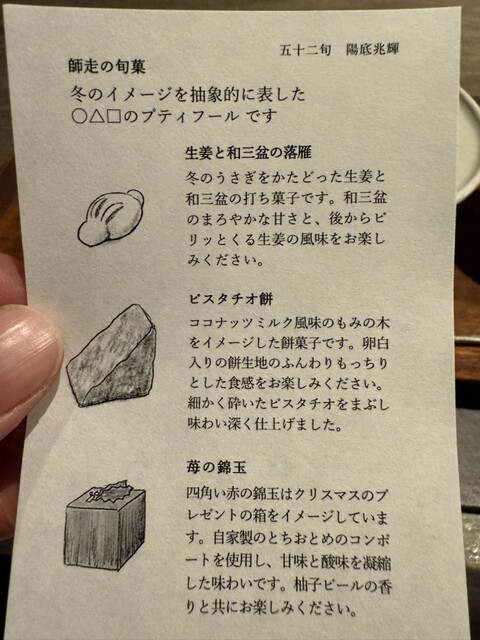 五十二旬　陽底兆輝
師走の旬菓
冬のイメージを抽象的に表した
〇△□のプティフール です
生姜と和三盆の落雁
冬のうさぎをかたどった生姜と
和三盆の打ち菓子です。和三盆
のまろやかな甘さと、後からピ
リッとくる生姜の風味をお楽し
みください。
ピスタチオ餅
ココナッツミルク風味のもみの木
をイメージした餅菓子です。卵白
入りの餅生地のふんわりもっちり
とした食感をお楽しみください。
細かく砕いたピスタチオをまぶし
味わい深く仕上げました。
苺の錦玉
四角い赤の錦玉はクリスマスのプ
レゼントの箱をイメージしていま
す。自家製のとちおとめのコンポ
ートを使用し、甘味と酸味を凝縮
した味わいです。柚子ピールの香
りと共にお楽しみください。